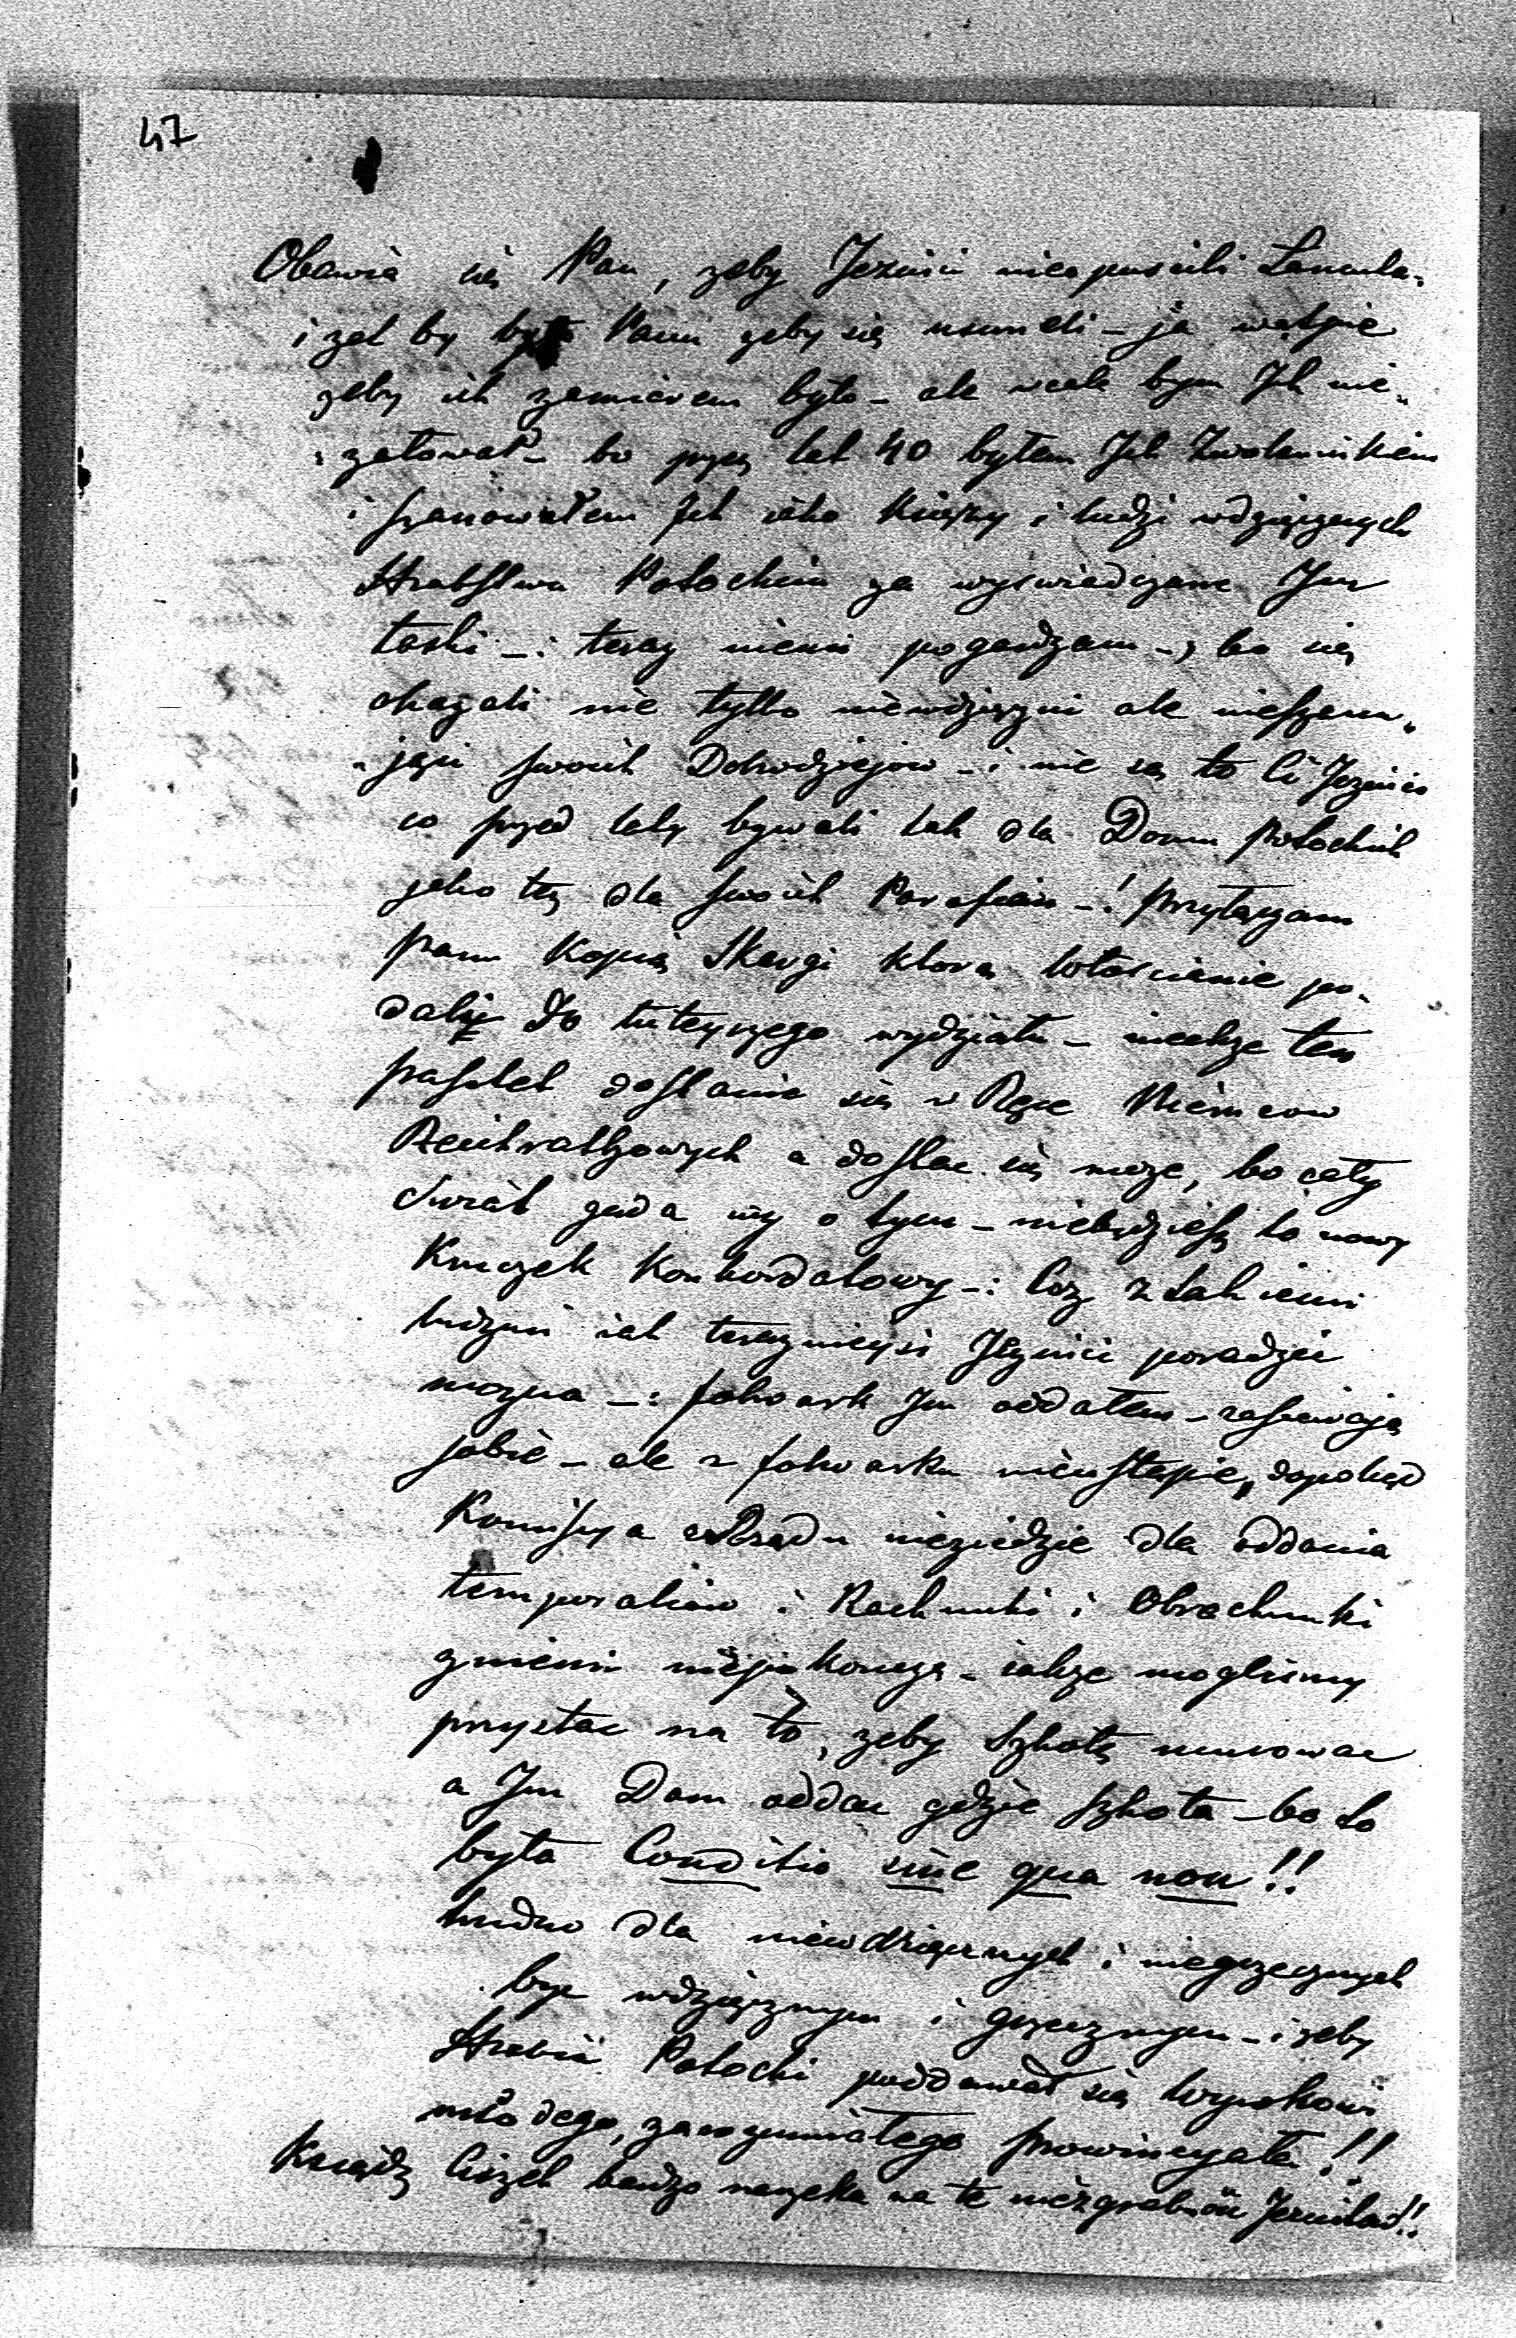 47
Obawia się Pan, żeby Jezuici nieopuścili Łancuta,
i żal by był Panu żeby się usuneli – ja wątpie
żeby ich zamiarem było – ale wcale bym Ich nie„
„żałował – bo przez lat 40 byłem Ich Zwolennikiem
i szanowałem Ich iako Księży i ludzi wdzięcznych
Hrabstwu Potockim za wyswiadczane Im
łaski – i teraz niemi pogardzam –, bo się
okazali nie tylko niewdzięczni ale nieszanu„
„jący swoich Dobrodziejow – i nie są to Ci Jezuici
co przed laty bywali tak dla Domu Potockich
jako też dla swoich Parafian –! Przyłączam
panu Kopią Skargi ktorą Włościanie po„
dali do tuteyszego wydziału – niechże ten
paszkel dostanie się w Ręce Niemcow
Reichratzowych a dostac się może, bo cały
Swiat gada o tym – niebędzieszż to nowy
Kruczek Konkordatowy –: Coż z takiemi
ludzmi iak teraznieysi Jezuici poradzic
można –: folwark Im oddałem – zasiewają
sobie – ale z folwarku nieustąpię, dopokąd
Komisya Rządu nieziedzie dla oddania
temporaliow i Rachunki i Obrachunki
z niemi niepokonczą – iakże moglismy
przystac na to, żeby Szkołę murowac
a Im Dom oddac gdzie szkoła – bo to
była Conditio sine qua non!!
trudno dla niewdzięcznych i niegrzecznych
byc wdzięcznym i grzecznym – i żeby
Hrabia Potocki poddawał się wyrokowi
młodego, zarozumiałego prowincyała!!
Ksiądz bardzo narzeka na te Jezuitow!!